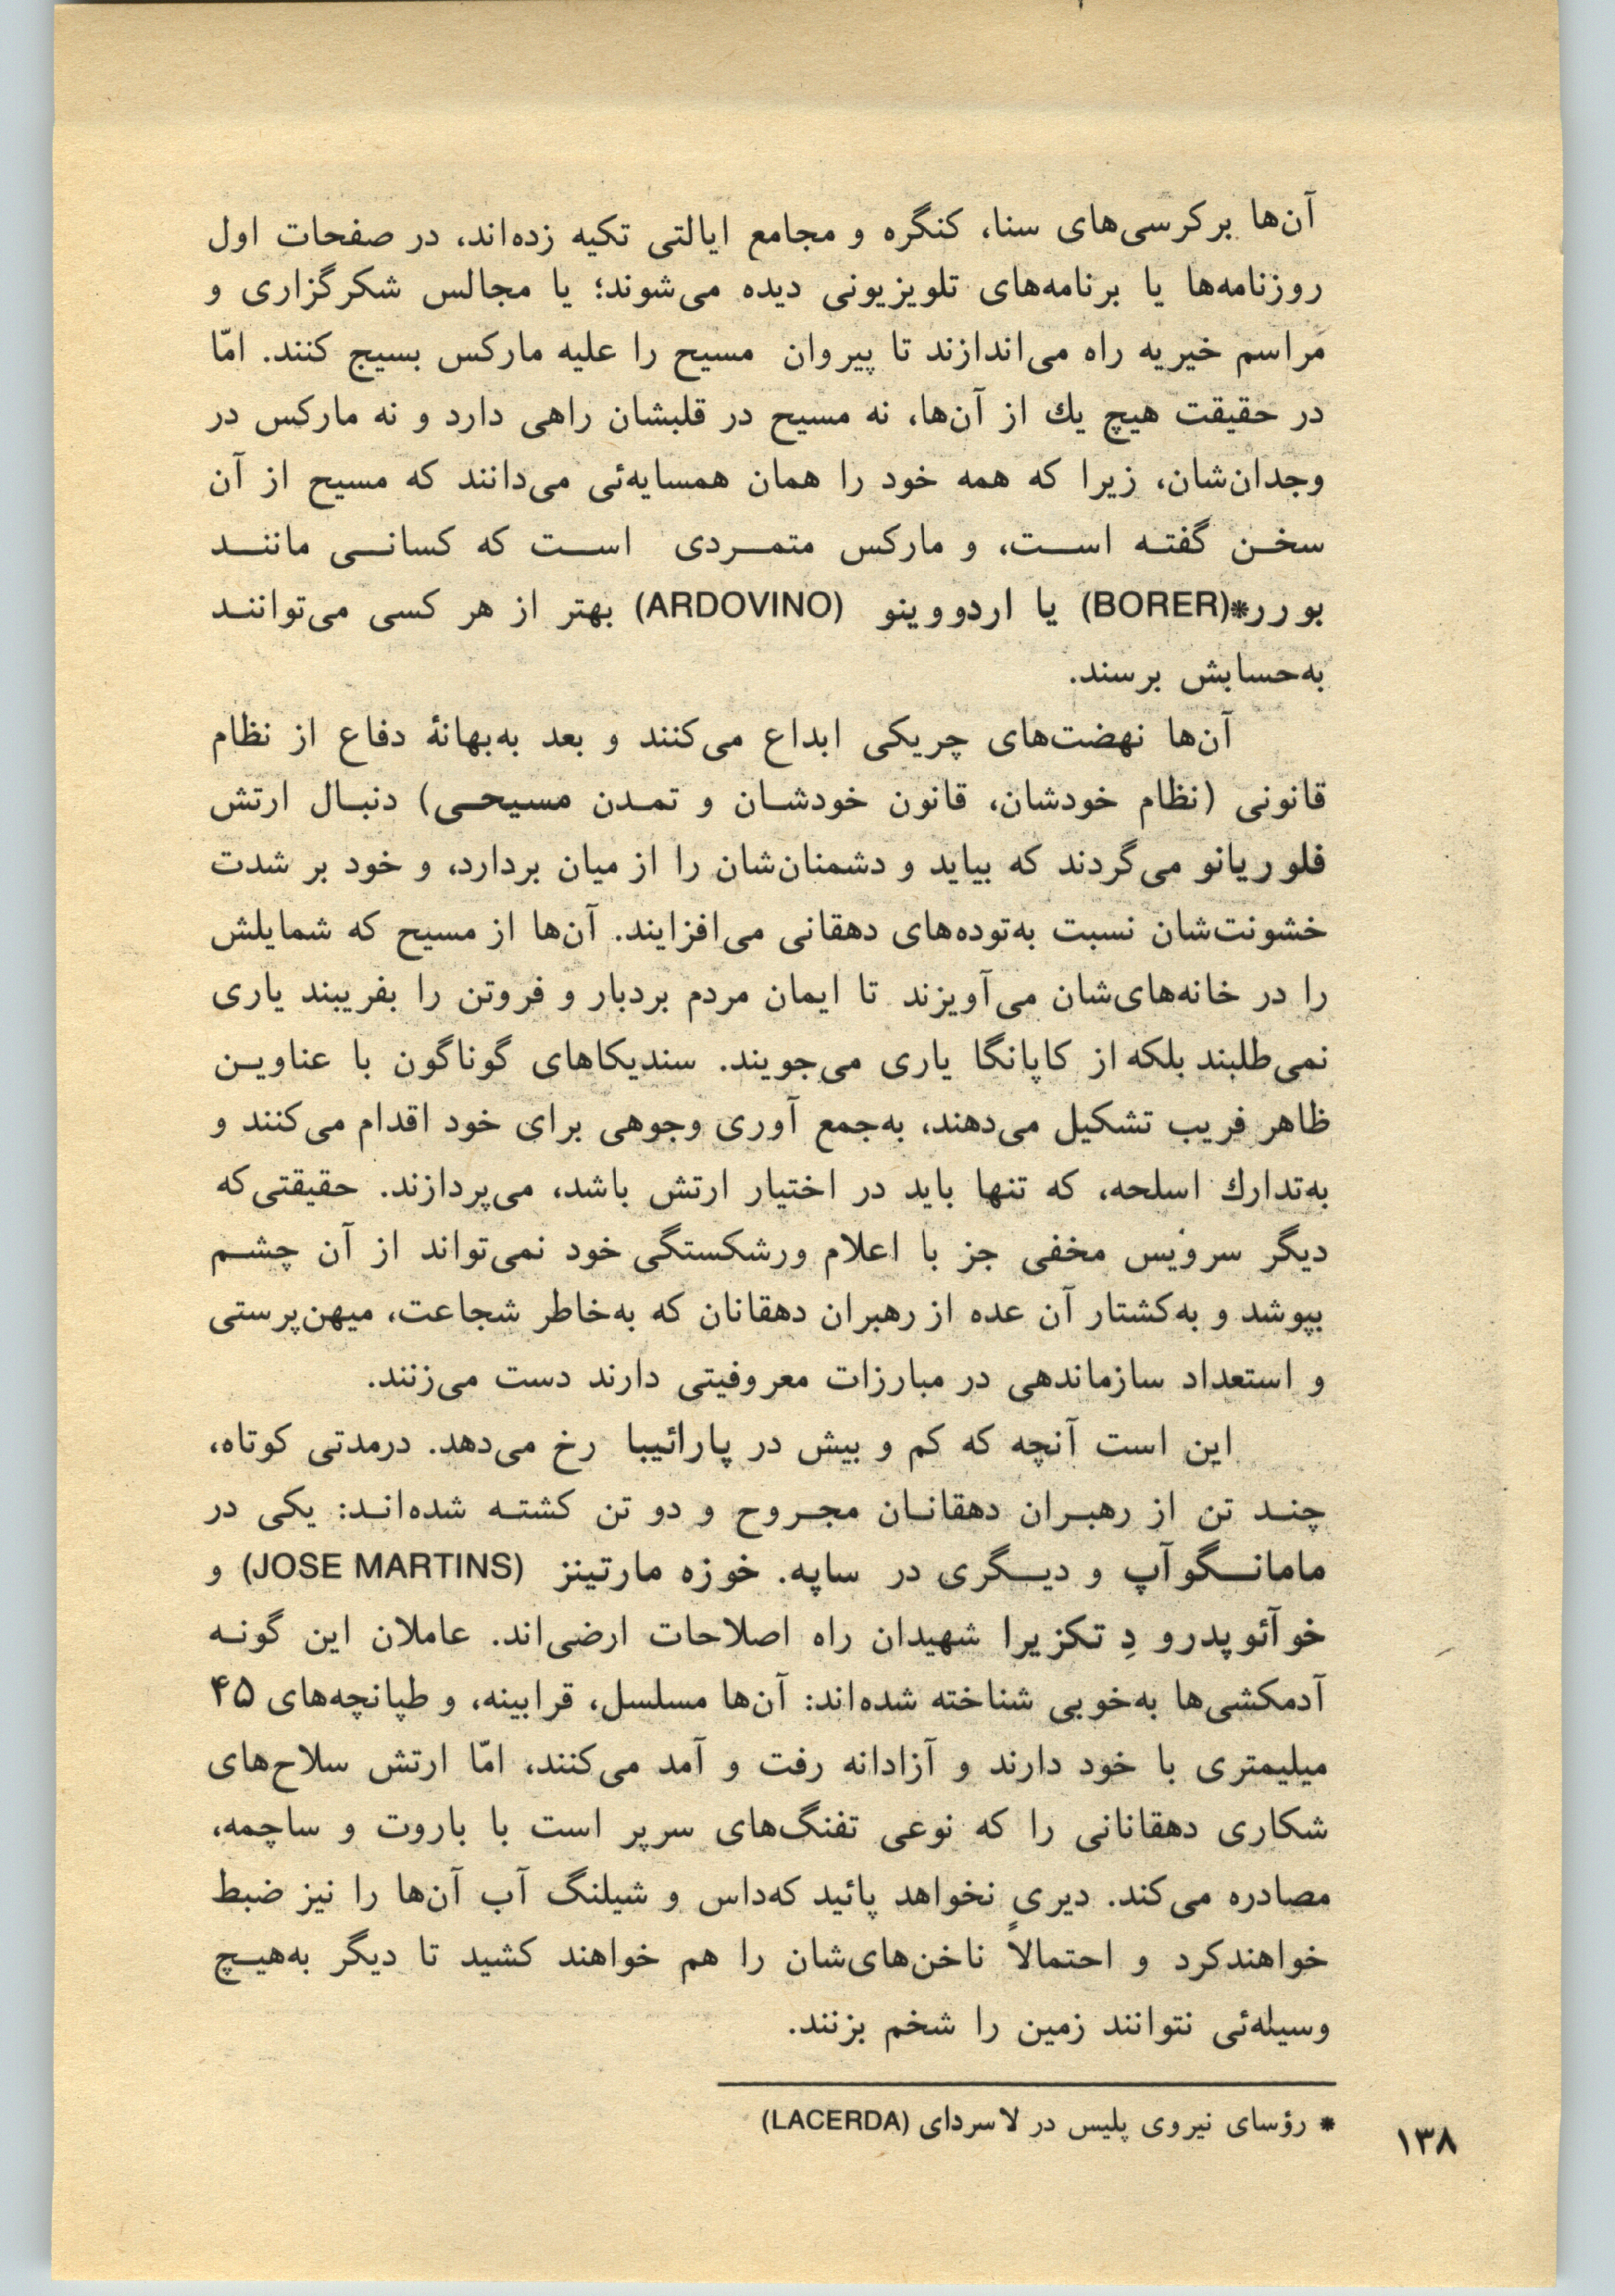 آن‌ها برکرسی‌های سنا، کنگره و مجامع ایالتی تکیه زده‌اند، در صفحات اول
روزنامه‌ها یا برنامه‌های تلویزیونی دیده می‌شوند؛ یا مجالس شکرگزاری و
مراسم خیریه راه می‌اندازند تا پیروان مسیح را علیه مارکس بسیج کنند. امّا
در حقیقت هیچ یك از آن‌ها، نه مسیح در قلبشان راهی دارد و نه مارکس در
وجدان‌شان، زیرا که همه خود را همان همسایه‌ئی می‌دانند که مسیح از آن
سخن گفته است، و مارکس متمردی است که کسانی مانند
بورر*(BORER) یا اردووینو (ARDOVINO) بهتر از هر کسی می‌توانند
به‌حسابش برسند.
آن‌ها نهضت‌های چریکی ابداع می‌کنند و بعد به‌بهانهٔ دفاع از نظام
قانونی (نظام خودشان، قانون خودشان و تمدن مسیحی) دنبال ارتش
فلوریانو می‌گردند که بیاید و دشمنان‌شان را از میان بردارد، و خود بر شدت
خشونت‌شان نسبت به‌توده‌های دهقانی می‌افزایند. آن‌ها از مسیح که شمایلش
را در خانه‌های‌شان می‌آویزند تا ایمان مردم بردبار و فروتن را بفریبند یاری
نمی‌طلبند بلکه از کاپانگا یاری می‌جویند. سندیکاهای گوناگون با عناوین
ظاهر فریب تشکیل می‌دهند، به‌جمع آوری وجوهی برای خود اقدام می‌کنند و
به‌تدارك اسلحه، که تنها باید در اختیار ارتش باشد، می‌پردازند. حقیقتی‌که
دیگر سرویس مخفی جز با اعلام ورشکستگی خود نمی‌تواند از آن چشم
بپوشد و به‌کشتار آن عده از رهبران دهقانان که به‌خاطر شجاعت، میهن‌پرستی
و استعداد سازماندهی در مبارزات معروفیتی دارند دست می‌زنند.
این است آنچه که کم و بیش در پارائیبا رخ می‌دهد. درمدتی کوتاه،
چند تن از رهبران دهقانان مجروح و دو تن کشته شده‌اند: یکی در
مامانگوآپ و دیگری در ساپه. خوزه مارتینز (JOSE MARTINS) و
خوآئوپدرو دِ تکزیرا شهیدان راه اصلاحات ارضی‌اند. عاملان این گونه
آدمکشی‌ها به‌خوبی شناخته شده‌اند: آن‌ها مسلسل، قرابینه، و طپانچه‌های ۴۵
میلیمتری با خود دارند و آزادانه رفت و آمد می‌کنند، امّا ارتش سلاح‌های
شکاری دهقانانی را که نوعی تفنگ‌های سرپر است با باروت و ساچمه،
مصادره می‌کند. دیری نخواهد پائید که‌داس و شیلنگ آب آن‌ها را نیز ضبط
خواهندکرد و احتمالاً ناخن‌های‌شان را هم خواهند کشید تا دیگر به‌هیچ
وسیله‌ئی نتوانند زمین را شخم بزنند.
* رؤسای نیروی پلیس در لاسردای (LACERDA)
۱۳۸